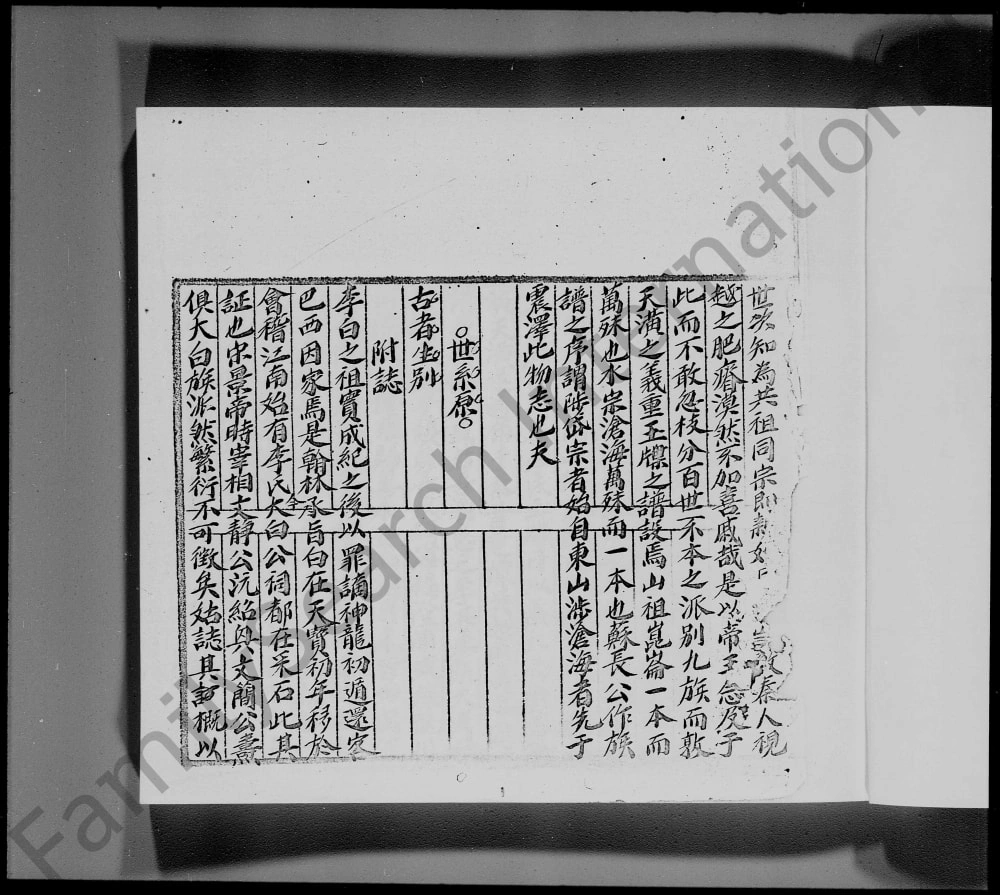 世次知為共祖同宗即秦人視
越之肥瘠漠然不加喜戚哉是以帝王念及于
此而不敢忽枝分百世不本之派別九族而敦
天潢之義重玉牒之譜設焉山祖崑崙一本而
萬殊也水宗滄海萬殊而一本也蘇長公作族
譜之序謂陟岱宗者始自東山涉滄海者先于
震澤此物志也夫
世系原
古耆坐別
附誌
李白之祖實成紀之後以罪謫神龍初遁還家
巴西因家焉是翰林承旨白在天寶初年移於
會稽江南始有李氏大白公祠都在采石此其
証也宋景帝時宰相文靜公沆紹與文簡公燾
俱大白族派然繁衍不可徵矣姑誌其概以
FamilySearch International